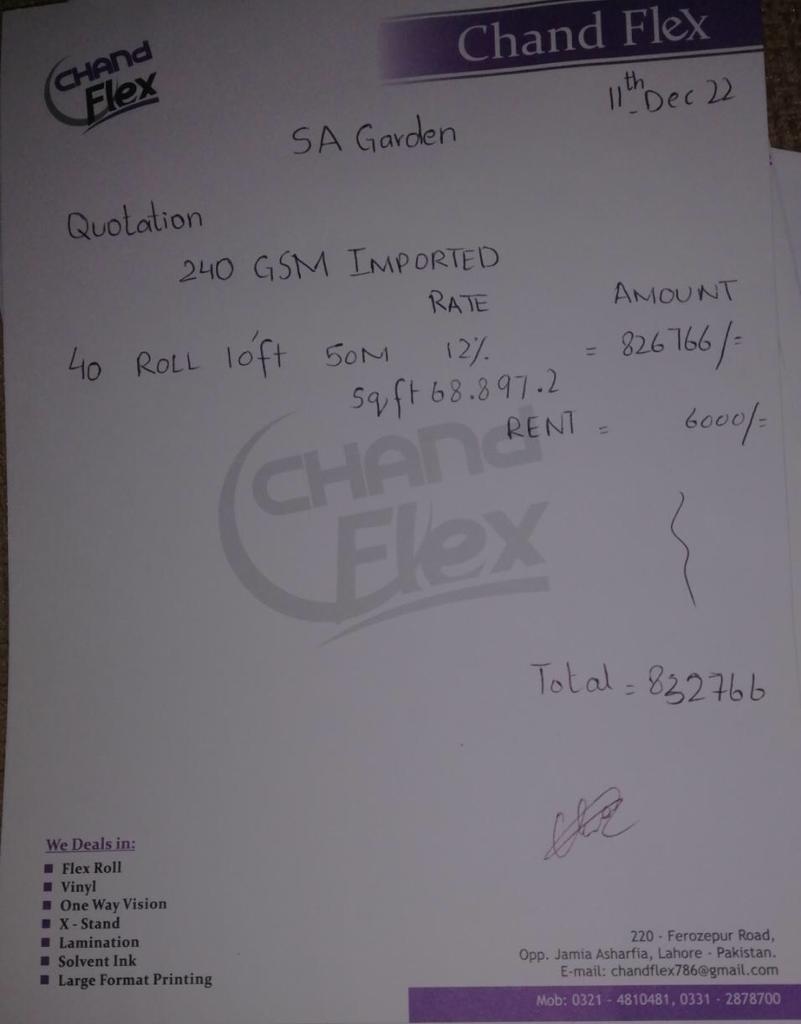 Chand Flex
CHAND
Flex
11th Dec 22
SA Garden
Quotation
240 GSM IMPORTED
RATE AMOUNT
40 ROLL 10'ft 50M 12% = 826766/=
Sqft 68.897.2
RENT = 6000/=
CHAND
Flex
Total = 832766
We Deals in:
■ Flex Roll
■ Vinyl
■ One Way Vision
■ X - Stand
■ Lamination
■ Solvent Ink
■ Large Format Printing
220 - Ferozepur Road,
Opp. Jamia Asharfia, Lahore - Pakistan.
E-mail: chandflex786@gmail.com
Mob: 0321 - 4810481, 0331 - 2878700